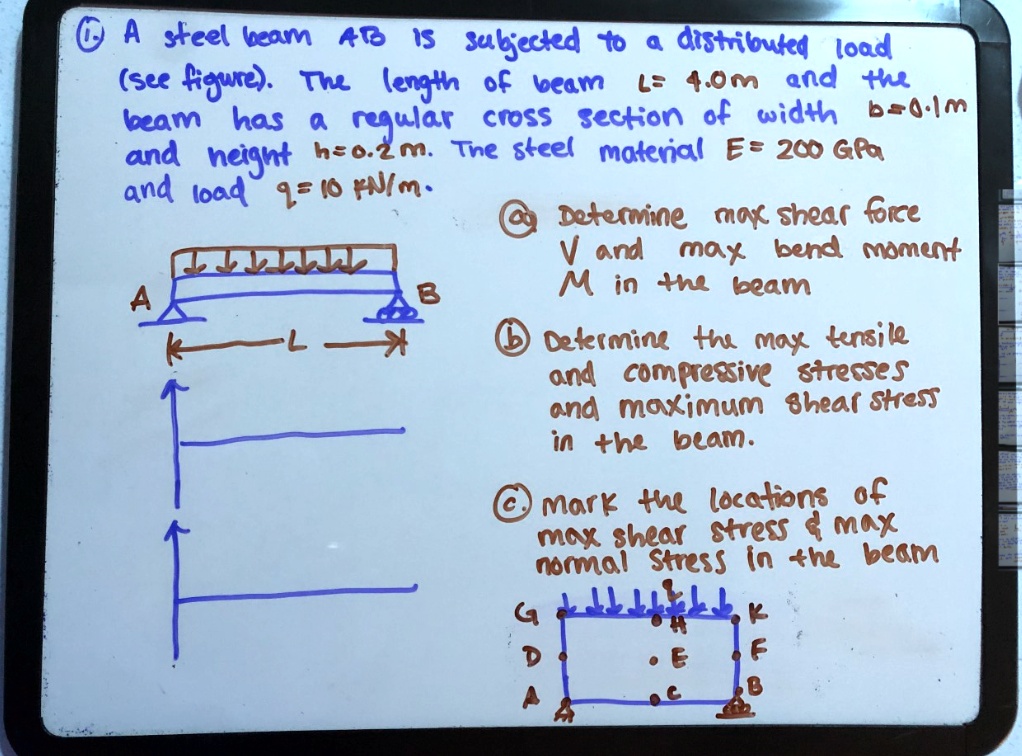 1. A steel beam AB is subjected to a distributed load
(see figure). The length of beam L= 4.0m and the
beam has a regular cross section of width b=0.1m
and height h=0.2m. The steel material E= 200 GPa
and load q=10 KN/m.
(a) Determine max shear force
V and max bend moment
M in the beam
A
B
L
(b) Determine the max tensile
and compressive stresses
and maximum shear stress
in the beam.
(c.) mark the locations of
max shear stress & max
normal stress in the beam
q
G H K
D E F
A C B